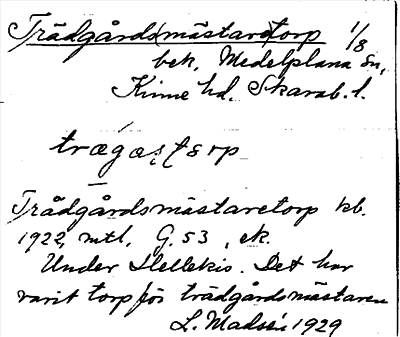 Trädgårdsmästaretorp 1/8
bek. Medelplana sn,
Kinne hd. Skarab. l.
trægastɔrp
Trädgårdsmästaretorp kb.
1922, mtl, G. 53, ek.
Under Hellekis. Det har
varit torp för trädgårdsmästaren
L. Madsén 1929